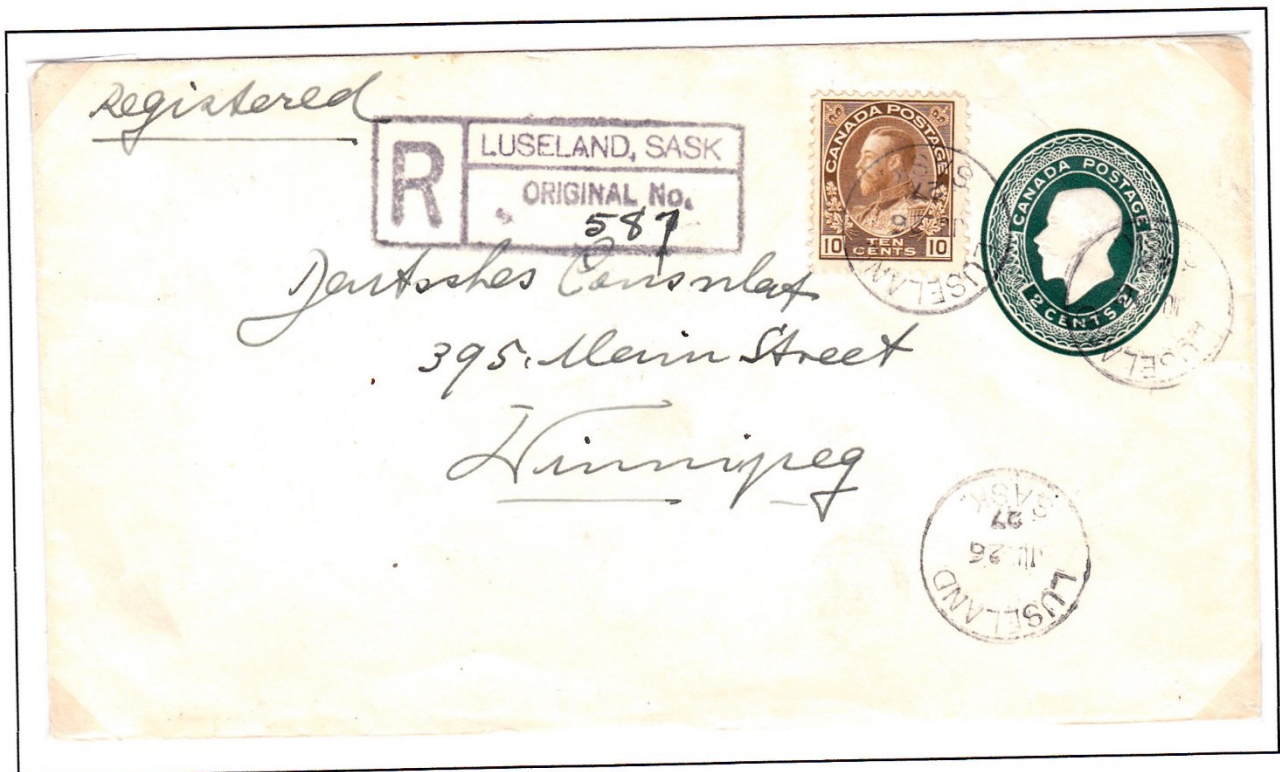 Registered
R
LUSELAND, SASK
ORIGINAL No.
587
CANADA POSTAGE
10 TEN CENTS 10
CANADA POSTAGE
2 CENTS 2
Deutsches Consulat
395. Main Street
Winnipeg
LUSELAND
26
27
SASK.